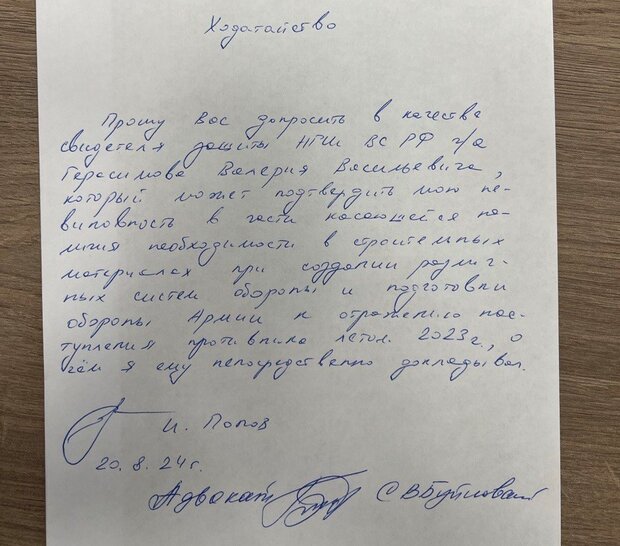 Ходатайство
Прошу Вас допросить в качестве
свидетеля защиты НГШ ВС РФ г/а
Герасимова Валерия Васильевича,
который может подтвердить мою не-
виновность в части касающейся на-
личия необходимости в строительных
материалах при создании различ-
ных систем обороны и подготовки
обороны Армии к отражению нас-
тупления противника летом 2023г., о
чём я ему непосредственно докладывал.
И. Попов
20.8.24г.
Адвокат С В